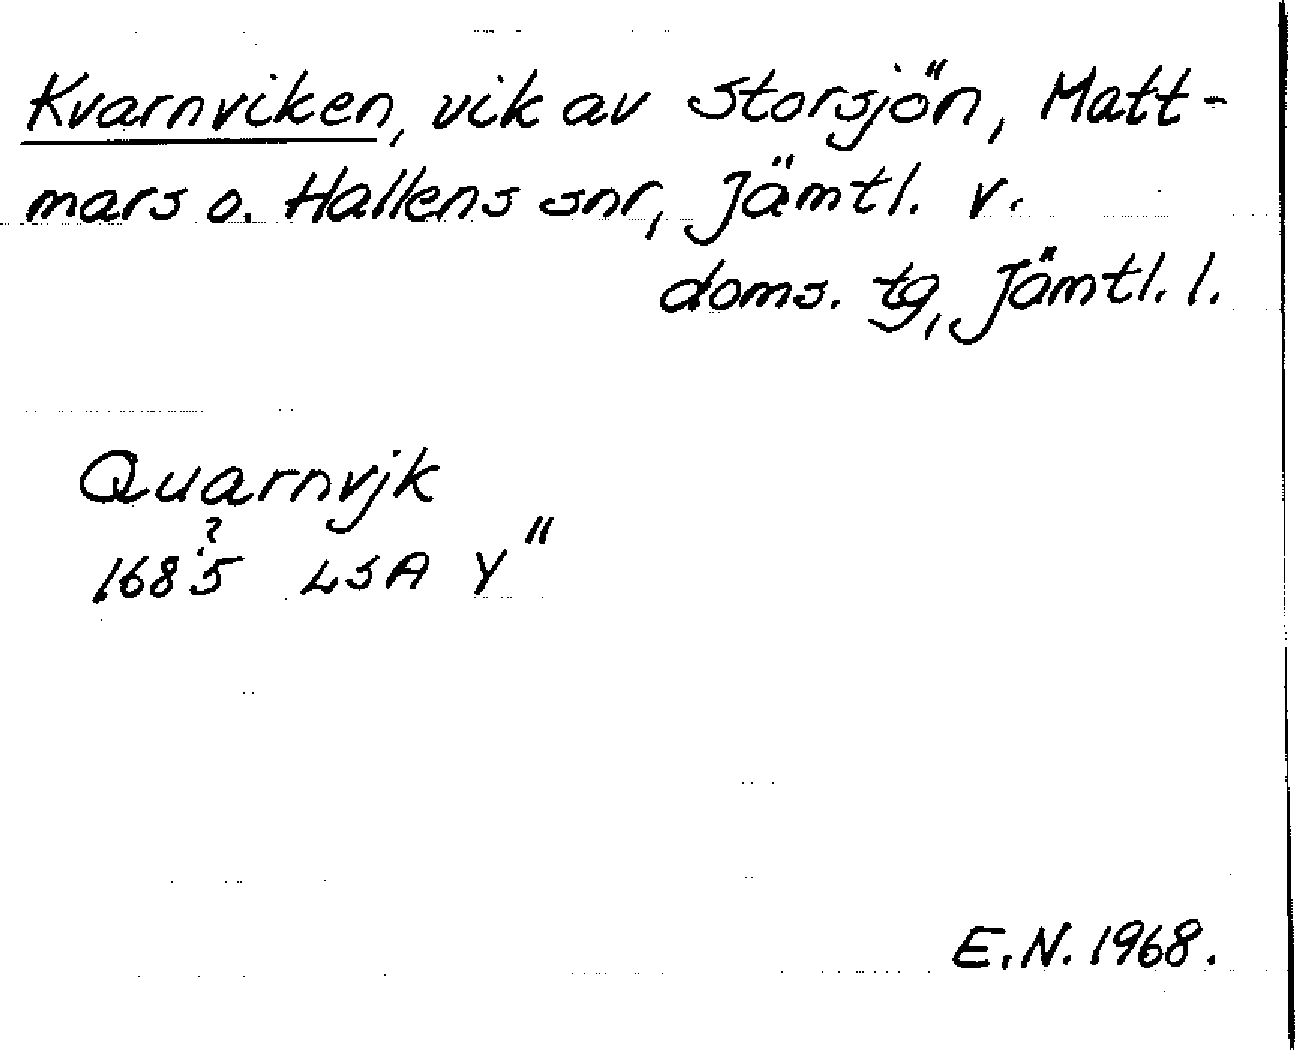 Kvarnviken, vik av Storsjön, Matt-
mars o. Hallens snr, Jämtl. v.
doms. tg, Jämtl. l.
Quarnvjk
?
1685 LSA Y"
E.N. 1968.